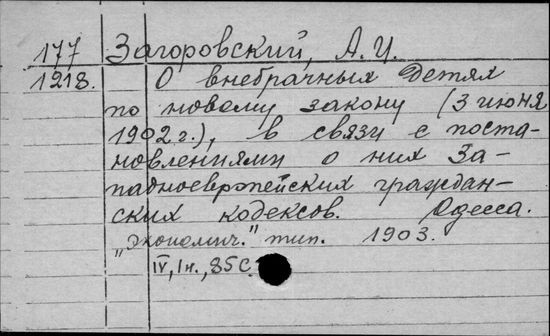 177 Загоровский, А.И.
1218. О внебрачных детях
по новому закону (3 июня
1902 г.), в связи с поста-
новлениями о них За-
падноевропейских граждан-
ских кодексов. Одесса.
„Экономич." тип. 1903.
IV, 1н., 85 С.